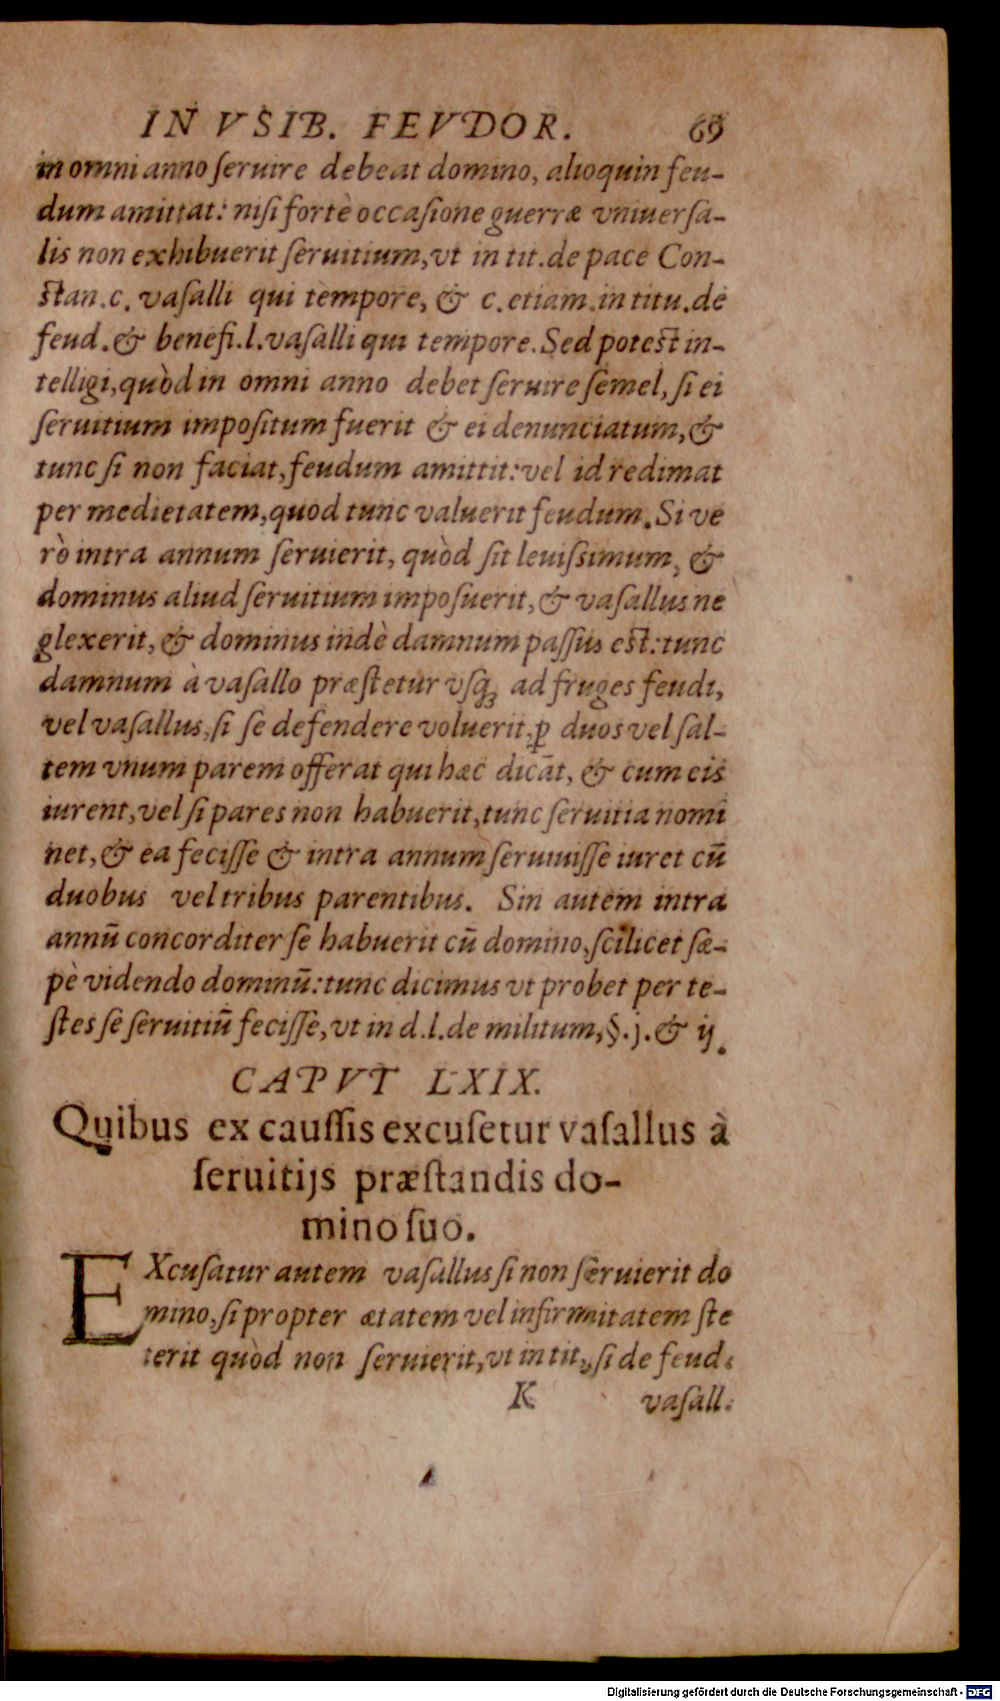 IN VSIB. FEVDOR. 69
in omni anno ſeruire debeat domino, alioquin feu-
dum amittat: niſi fortè occaſione guerræ vniuerſa-
lis non exhibuerit ſeruitium, vt in tit. de pace Con-
ſtan. c. vaſalli qui tempore, & c. etiam. in titu. de
feud. & benefi. l. vaſalli qui tempore. Sed poteſt in-
telligi, quòd in omni anno debet ſeruire ſemel, ſi ei
ſeruitium impoſitum fuerit & ei denunciatum, &
tunc ſi non faciat, feudum amittit: vel id redimat
per medietatem, quod tunc valuerit feudum. Si ve
rò intra annum ſeruierit, quòd ſit leuiſsimum, &
dominus aliud ſeruitium impoſuerit, & vaſallus ne
glexerit, & dominus indè damnum paſſus eſt: tunc
damnum à vaſallo præſtetur vſq; ad fruges feudi,
vel vaſallus, ſi ſe defendere voluerit, ꝑ duos vel ſal-
tem vnum parem offerat qui hæc dicāt, & cum eis
iurent, vel ſi pares non habuerit, tunc ſeruitia nomi
net, & ea feciſſe & intra annum ſeruiuiſſe iuret cū
duobus vel tribus parentibus. Sin autem intra
annū concorditer ſe habuerit cū domino, ſcilicet ſæ-
pè videndo dominū: tunc dicimus vt probet per te-
ſtes ſe ſeruitiū feciſſe, vt in d. l. de militum, §. j. & ij.
CAPVT LXIX.
Quibus ex cauſſis excuſetur vaſallus à
ſeruitijs præſtandis do-
mino ſuo.
EXcuſatur autem vaſallus ſi non ſeruierit do
mino, ſi propter ætatem vel infirmitatem ſte
terit quòd non ſeruierit, vt in tit., ſi de feud.
K vaſall.
Digitalisierung gefördert durch die Deutsche Forschungsgemeinschaft - DFG